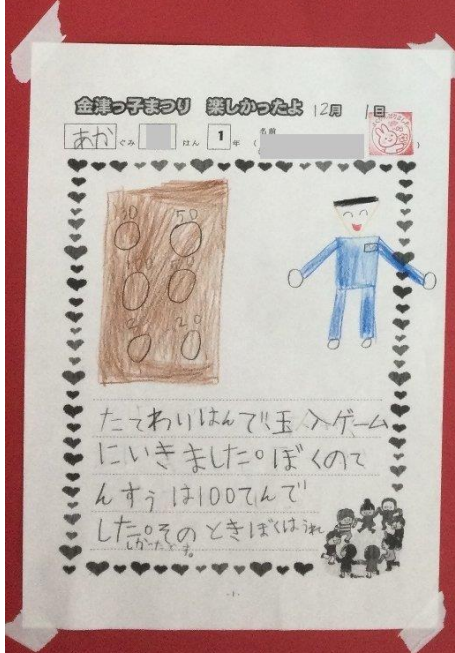 金津っ子まつり 楽しかったよ 12月 1日
あか ぐみ はん 1 年 ( 名前 )
130 50
20
たてわりはんで玉入ゲーム
にいきました。ぼくのて
んすうは100てんで
した。そのときぼくはうれ
しかったです。
- 1 -